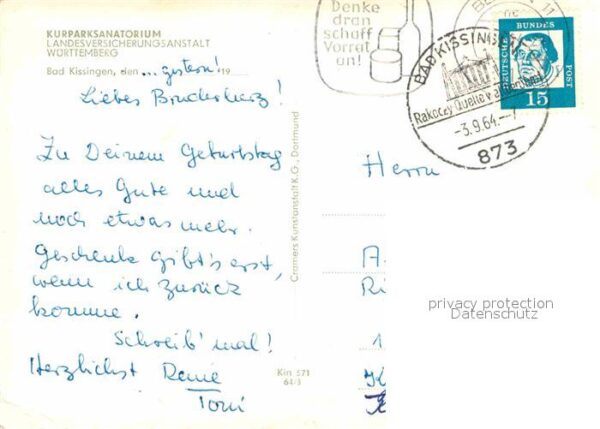 KURPARKSANATORIUM
LANDESVERSICHERUNGSANSTALT
WÜRTTEMBERG
Bad Kissingen, den ... gestern! 19
Liebes Bruderherz!
Zu Deinem Geburtstag
alles Gute und
noch etwas mehr.
Geschenke gibt's erst,
wenn ich zurück
komme.
Schreib' mal!
Herzlichst
Toni
Cramers Kunstanstalt K.G., Dortmund
Kin 571
64/3
Denke
dran
schaff
Vorrat
an!
BAD KISSINGEN
Rakoczy Quelle
-3.9.64.-7
873
DEUTSCHE
BUNDES
POST
15
Herrn
A.
Ri
1
privacy protection
Datenschutz